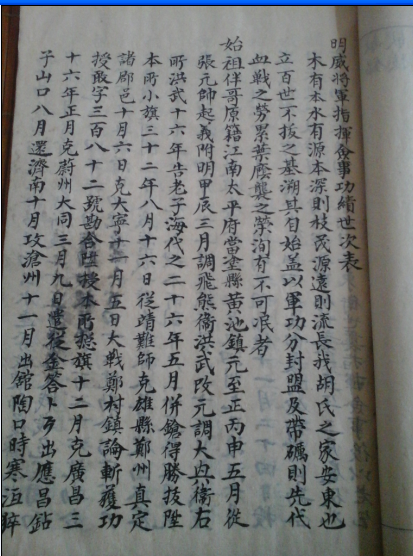 明威將軍指揮僉事功績世次表
木有本水有源本深則枝茂源遠則流長我胡氏之家安東也
立百世不拔之基溯其自始蓋以軍功分封盟及帶礪則先代
血戰之勞累葉廕襲之榮洵有不可泯者
始祖伴哥原籍江南太平府當塗縣黃池鎮元至正丙申五月從
張元帥起義門明甲辰三月調飛熊衛洪武改元調大興衛右
所洪武十六年告老子海代之二十六年五月併鎗得勝技陞
本所小旗三十二年八月十六日從靖難師克雄縣鄭州真定
諸郡邑十月六日克大寧十一月五日大戰鄭村鎮論斬獲功
授敢字三百八十二號勘合陞授本所總旗十二月克廣昌三
十六年正月克蔚州大同三月九日還從金答卜歹出應昌鉆
子山口八月還濟南十月攻滄州十一月出館陶口時寒沍猝